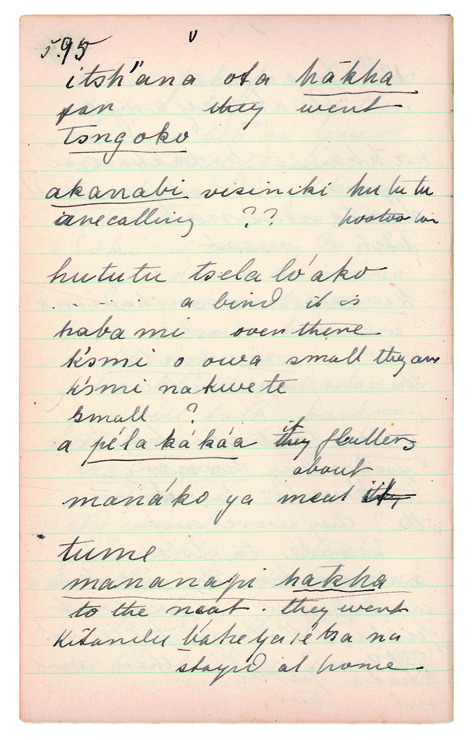 5.95
itsh'ana ofa hakha
far they went
Tsngoko
akanabi visiniki hututu
are calling ?? hootoo
hututu tsela lo'ako
a bird it is
haba mi over there
k'smi o owa small they are
k'smi nakwete
small ?
a péla kákáa it flutters
about
manáko ya meat
tume
mananagi hakha
to the neat. they went
ya iétsa na
stayed at home.